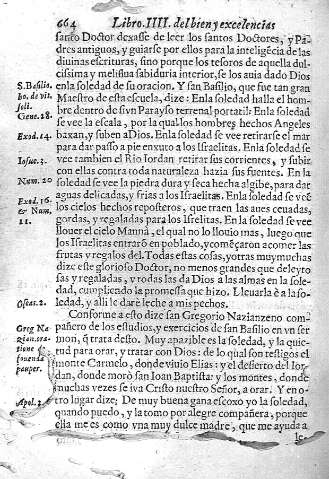 664 Libro IIII. del bien y excelencias
santo Doctor dexasse de leer los santos Doctores, y Pa-
dres antiguos, y guiarse por ellos para la inteligẽcia de las
diuinas escrituras, sino porque los tesoros de aquella dul-
cissima y meliflua sabiduria interior, se los auia dado Dios
S. Basilio. enla soledad de su oracion. Y san Basilio, que fue tan gran
ho. de vit. Maestro de esta escuela, dize: Enla soledad halla el hom-
soli. bre dentro de si vn Parayso terrenal portatil: Enla soledad
Gene. 28. se vee la escala, por la qual los hombres hechos Angeles
Exod. 14. baxan, y suben a Dios. Enla soledad se vee retirarse el mar
para dar passo a pie enxuto a los Israelitas. Enla soledad se
Iosue. 3. vee tambien el Rio Iordan retirar sus corrientes, y subir
con ellas contra toda naturaleza hazia sus fuentes. En la
Num. 20 soledad se vee la piedra dura y seca hecha algibe, para dar
aguas delicadas, y frias a los Israelitas. Enla soledad se veẽ
Exod. 16. los cielos hechos reposteros, que traen las aues ceuadas,
& Num. gordas, y regaladas para los Isrelitas. En la soledad se vee
11. llouer el cielo Mannà, el qual no lo llouio mas, luego que
los Israelitas entrarõ en poblado, y començaron a comer las
frutas y regalos del. Todas estas cosas, y otras muy muchas
dize este glorioso Doctor, no menos grandes que deleyto-
sas y regaladas, y todas las da Dios a las almas en la sole-
dad, cumpliendo la promessa que hizo. Lleuarla è a la so-
Oseas. 2. ledad, y alli le daré leche a mis pechos.
Conforme a esto dize san Gregorio Nazianzeno com-
Greg Na pañero de los estudios, y exercicios de san Basilio en vn ser
zian. ora- mon, q̃ trata desto. Muy apazible es la soledad, y la quie-
tione tud para orar, y tratar con Dios: de lo qual son testigos el
monte Carmelo, donde viuio Elias: y el desierto del Ior-
pauper. dan, donde morò san Ioan Baptista: y los montes, donde
muchas vezes se iva Cristo nuestro Señor, a orar. Y en o-
Apol. 1. tro lugar dize: De muy buena gana escoxo yo la soledad,
quando puedo, y la tomo por alegre compañera, porque
ella me es como vna muy dulce madre, que me ayuda a
le-